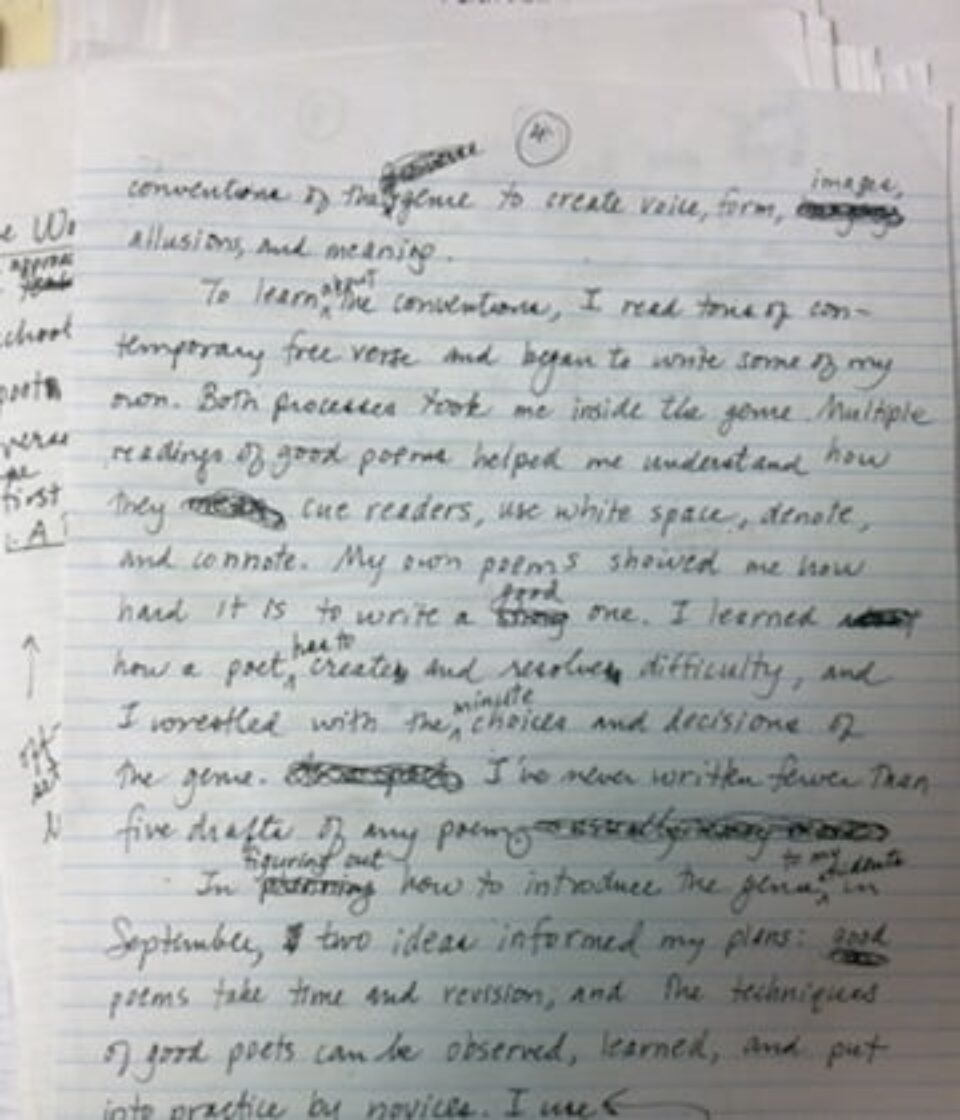 4
conventions of the genre to create voice, form, images,
allusions, and meaning.
To learn about the conventions, I read tons of con-
temporary free verse and began to write some of my
own. Both processes took me inside the genre. Multiple
readings of good poems helped me understand how
they cue readers, use white space, denote,
and connote. My own poems showed me how
hard it is to write a good one. I learned
how a poet has to create and resolve difficulty, and
I wrestled with the minute choices and decisions of
the genre. I've never written fewer than
five drafts of any poem.
In figuring out how to introduce the genre to my students in
September, two ideas informed my plans: good
poems take time and revision, and the techniques
of good poets can be observed, learned, and put
into practice by novices. I use
chool
verse
first
A